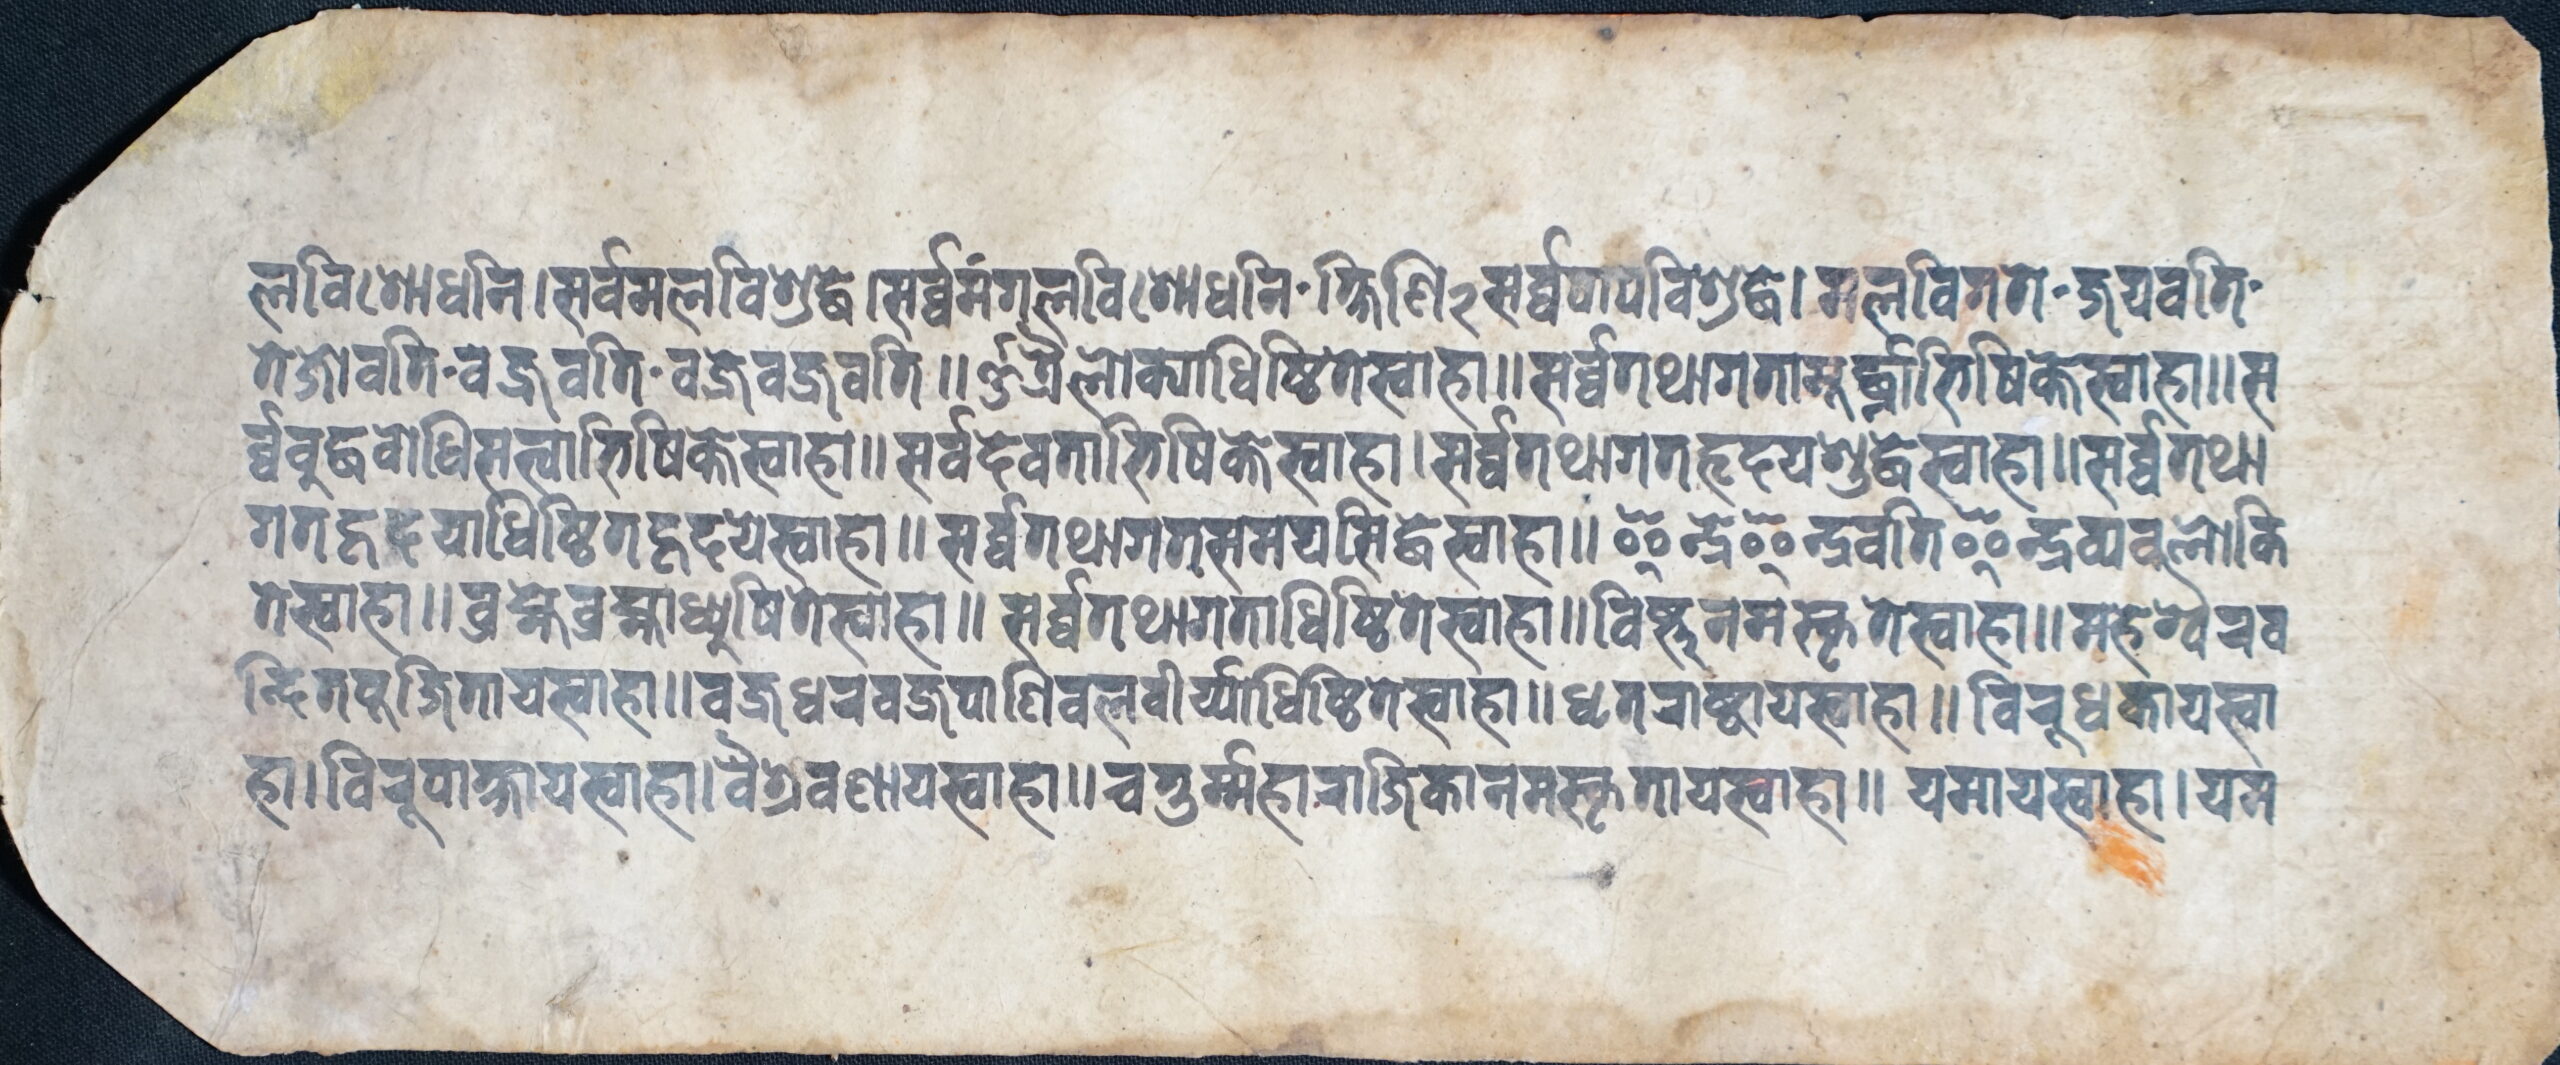 लविशोधनि।सर्वमलविशुद्धे।सर्व्वमंगलविशोधनि·क्षिणि२सर्व्वपापविशुद्धे।मलविगते·जयवति·
तेजोवति·वज्रवति·वज्रेवज्रवति॥ॐत्रैलोक्याधिष्ठितेस्वाहा॥सर्व्वतथागतामूर्द्ध्नाभिषिक्तेस्वाहा॥स
र्व्वबुद्धबोधिसत्वाभिषिक्तेस्वाहा॥सर्वदेवताभिषिक्तेस्वाहा।सर्व्वतथागतहृदयशुद्धेस्वाहा॥सर्व्वतथा
गतहृदयाधिष्ठितहृदयेस्वाहा॥सर्व्वतथागतसमयसिद्धेस्वाहा॥इन्द्रेइन्द्रवतिइन्द्रव्यवलोकि
तेस्वाहा॥ब्रह्मेब्रह्माध्युषितेस्वाहा॥सर्व्वतथागताधिष्ठितेस्वाहा॥विष्णुनमस्कृतेस्वाहा॥महेश्वरव
न्दितपूजितायस्वाहा॥वज्रधरवज्रपाणिबलवीर्य्याधिष्ठितेस्वाहा॥धृतराष्ट्रायस्वाहा॥विरूधकायस्वा
हा।विरूपाक्षायस्वाहा।वैश्रवणायस्वाहा॥चतुर्म्महाराजिकानमस्कृतायस्वाहा॥यमायस्वाहा।यम